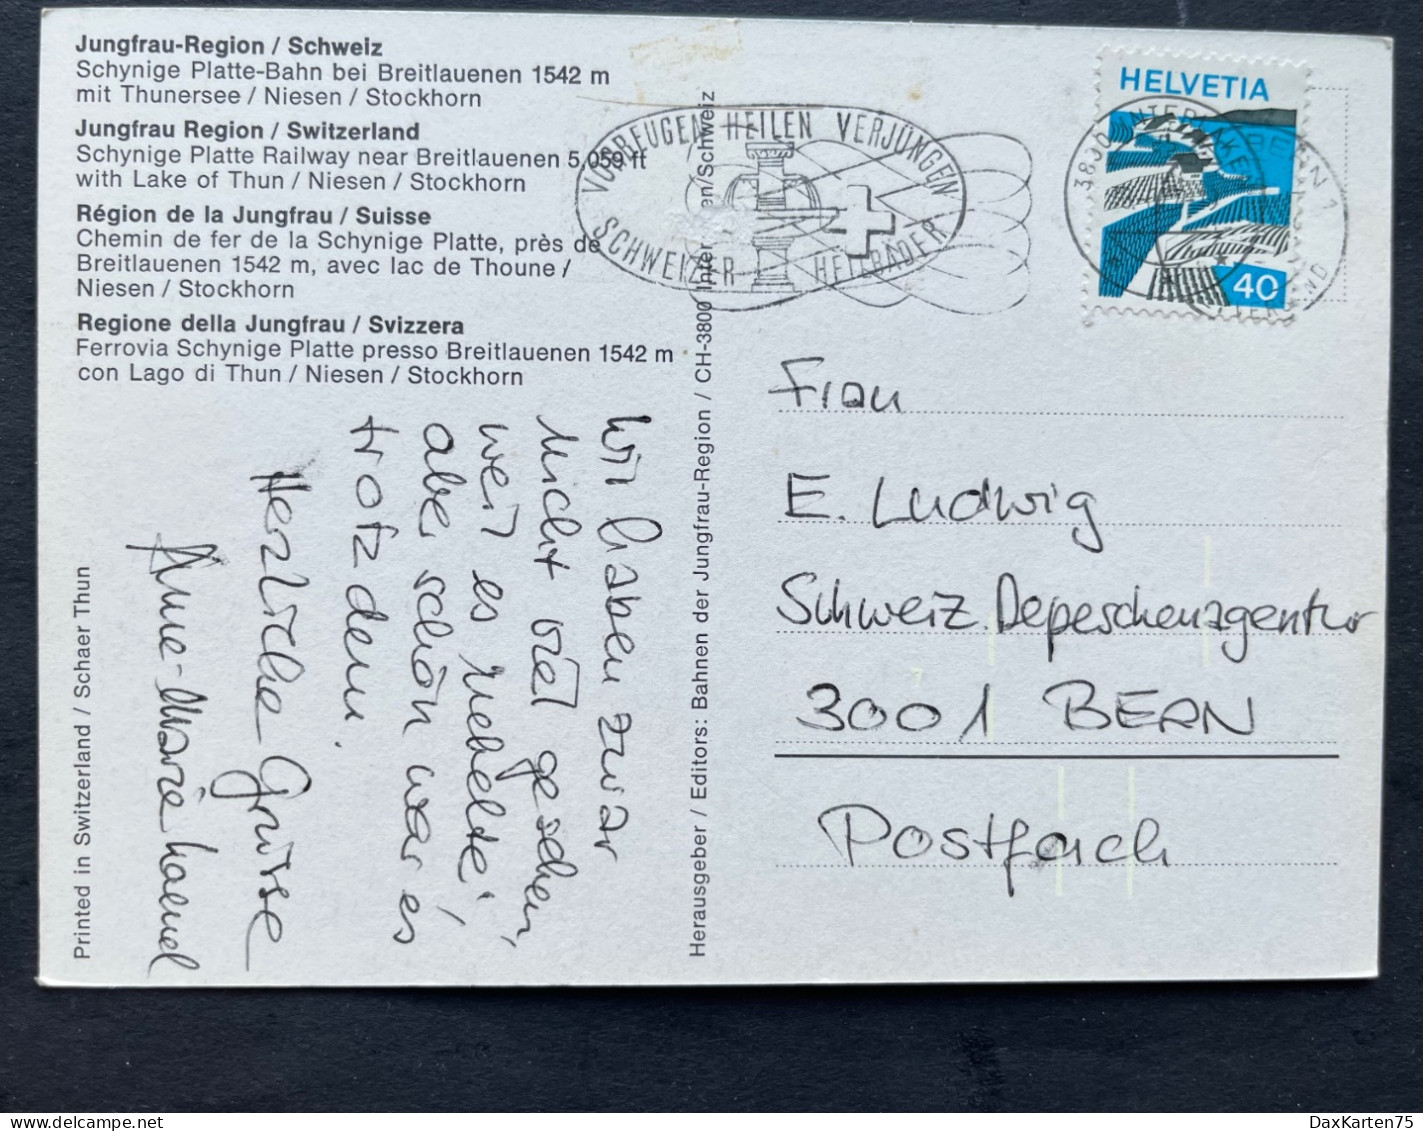 Jungfrau-Region / Schweiz
Schynige Platte-Bahn bei Breitlauenen 1542 m
mit Thunersee / Niesen / Stockhorn
Jungfrau Region / Switzerland
Schynige Platte Railway near Breitlauenen 5,059 ft
with Lake of Thun / Niesen / Stockhorn
Région de la Jungfrau / Suisse
Chemin de fer de la Schynige Platte, près de
Breitlauenen 1542 m, avec lac de Thoune /
Niesen / Stockhorn
Regione della Jungfrau / Svizzera
Ferrovia Schynige Platte presso Breitlauenen 1542 m
con Lago di Thun / Niesen / Stockhorn
Wir haben zwar
nicht viel gesehen,
weil es nebelte,
aber schön war es
trotzdem.
Herzliche Grüsse
Anne-Marie
Printed in Switzerland / Schaer Thun
Herausgeber / Editors: Bahnen der Jungfrau-Region / CH-3800 Inter en/Schweiz
VORBEUGEN HEILEN VERJÜNGEN
SCHWEIZER HEILBÄDER
HELVETIA
40
3800 INTERLAKEN 1
Frau
E. Ludwig
Schweiz. Depeschenagentur
3001 BERN
Postfach
delcampe.net
DaxKarten75